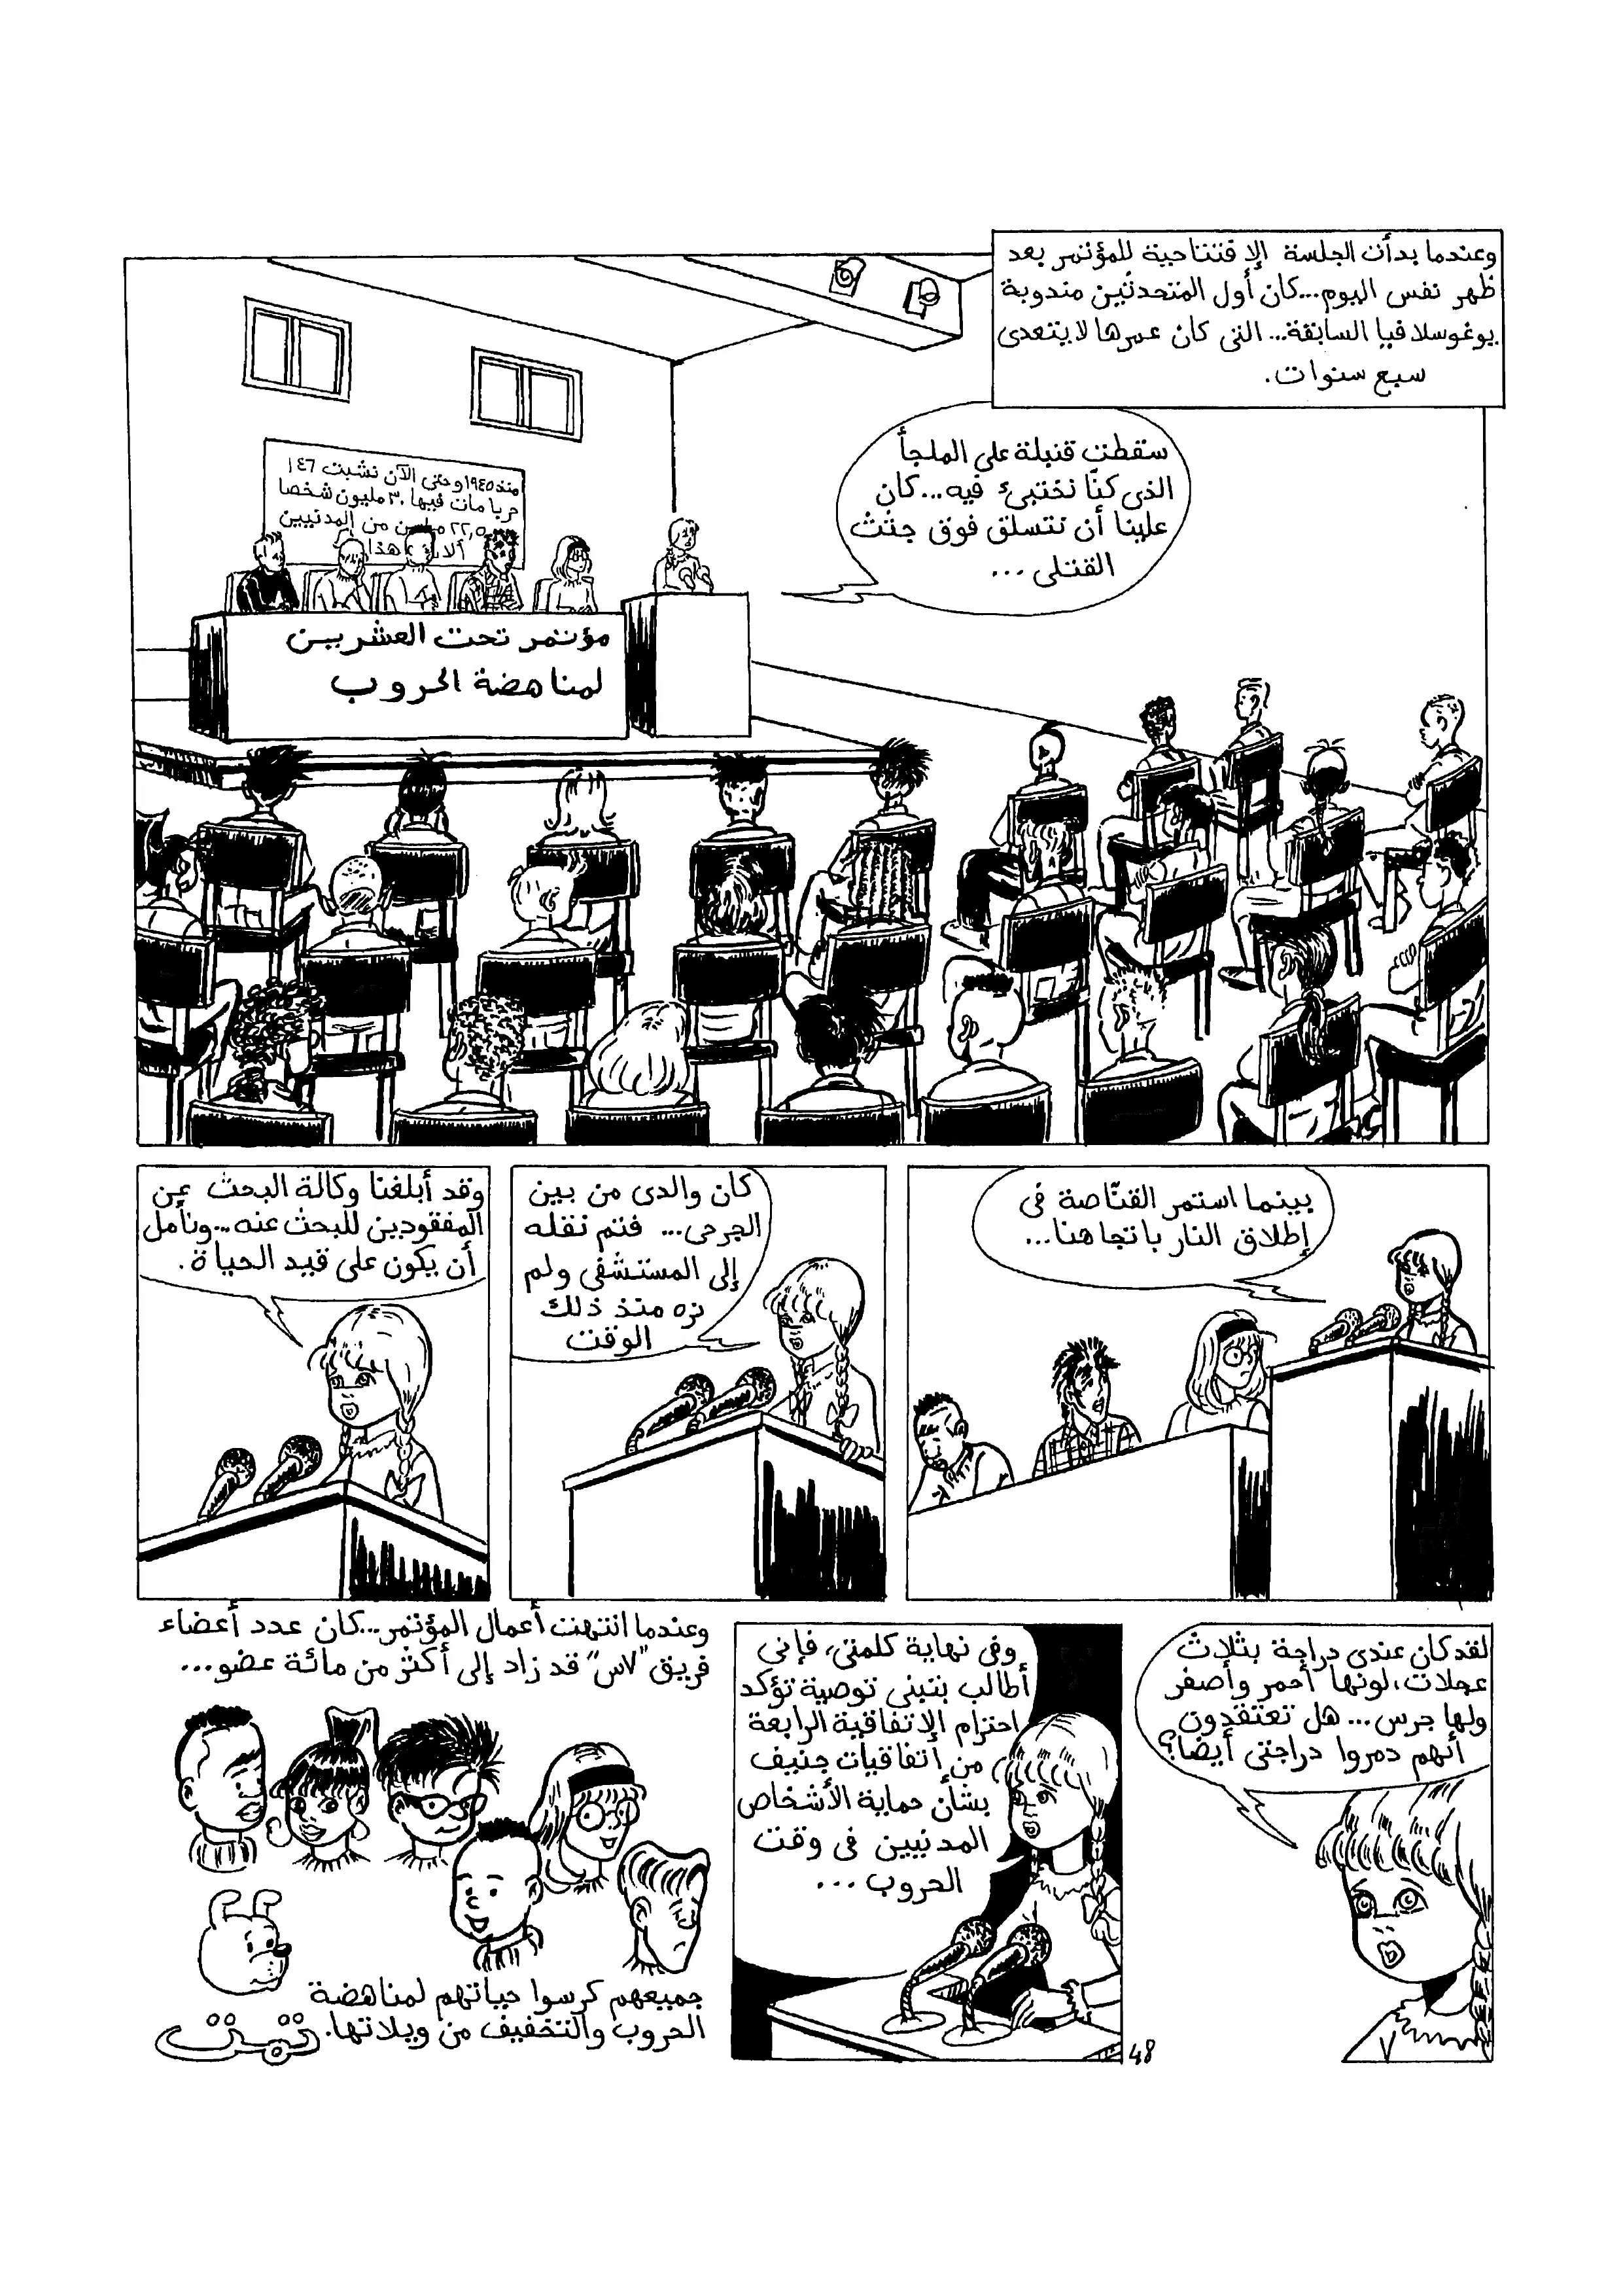 وعندما بدأت الجلسة الافتتاحية للمؤتمر بعد
ظهر نفس اليوم...كان أول المتحدثين مندوبة
يوغوسلافيا السابقة...التى كان عمرها لا يتعدى
سبع سنوات.
سقطت قنبلة على الملجأ
الذى كنّا نختبئ فيه...كان
علينا أن نتسلق فوق جثث
القتلى...
منذ ١٩٤٥ وحتى الآن نشبت ١٤٦
حربا مات فيها ٣٠ مليون شخصا
٢٢,٥ من المدنيين
هذا
مؤتمر تحت العشرين
لمناهضة الحروب
بينما استمر القنّاصة فى
إطلاق النار باتجاهنا...
كان والدى من بين
الجرحى... فتم نقله
إلى المستشفى ولم
نره منذ ذلك
الوقت
وقد أبلغنا وكالة البحث عن
المفقودين للبحث عنه...ونأمل
أن يكون على قيد الحياة.
لقد كان عندى دراجة بثلاث
عجلات، لونها أحمر وأصفر
ولها جرس... هل تعتقدون
أنهم دمروا دراجتى أيضا؟
وفى نهاية كلمتى، فإنى
أطالب بتبنى توصية تؤكد
احترام الإتفاقية الرابعة
من إتفاقيات جنيف
بشأن حماية الأشخاص
المدنيين فى وقت
الحروب...
48
وعندما انتهت أعمال المؤتمر...كان عدد أعضاء
فريق "لاس" قد زاد إلى أكثر من مائة عضو...
جميعهم كرسوا حياتهم لمناهضة
الحروب والتخفيف من ويلاتها.
تمت